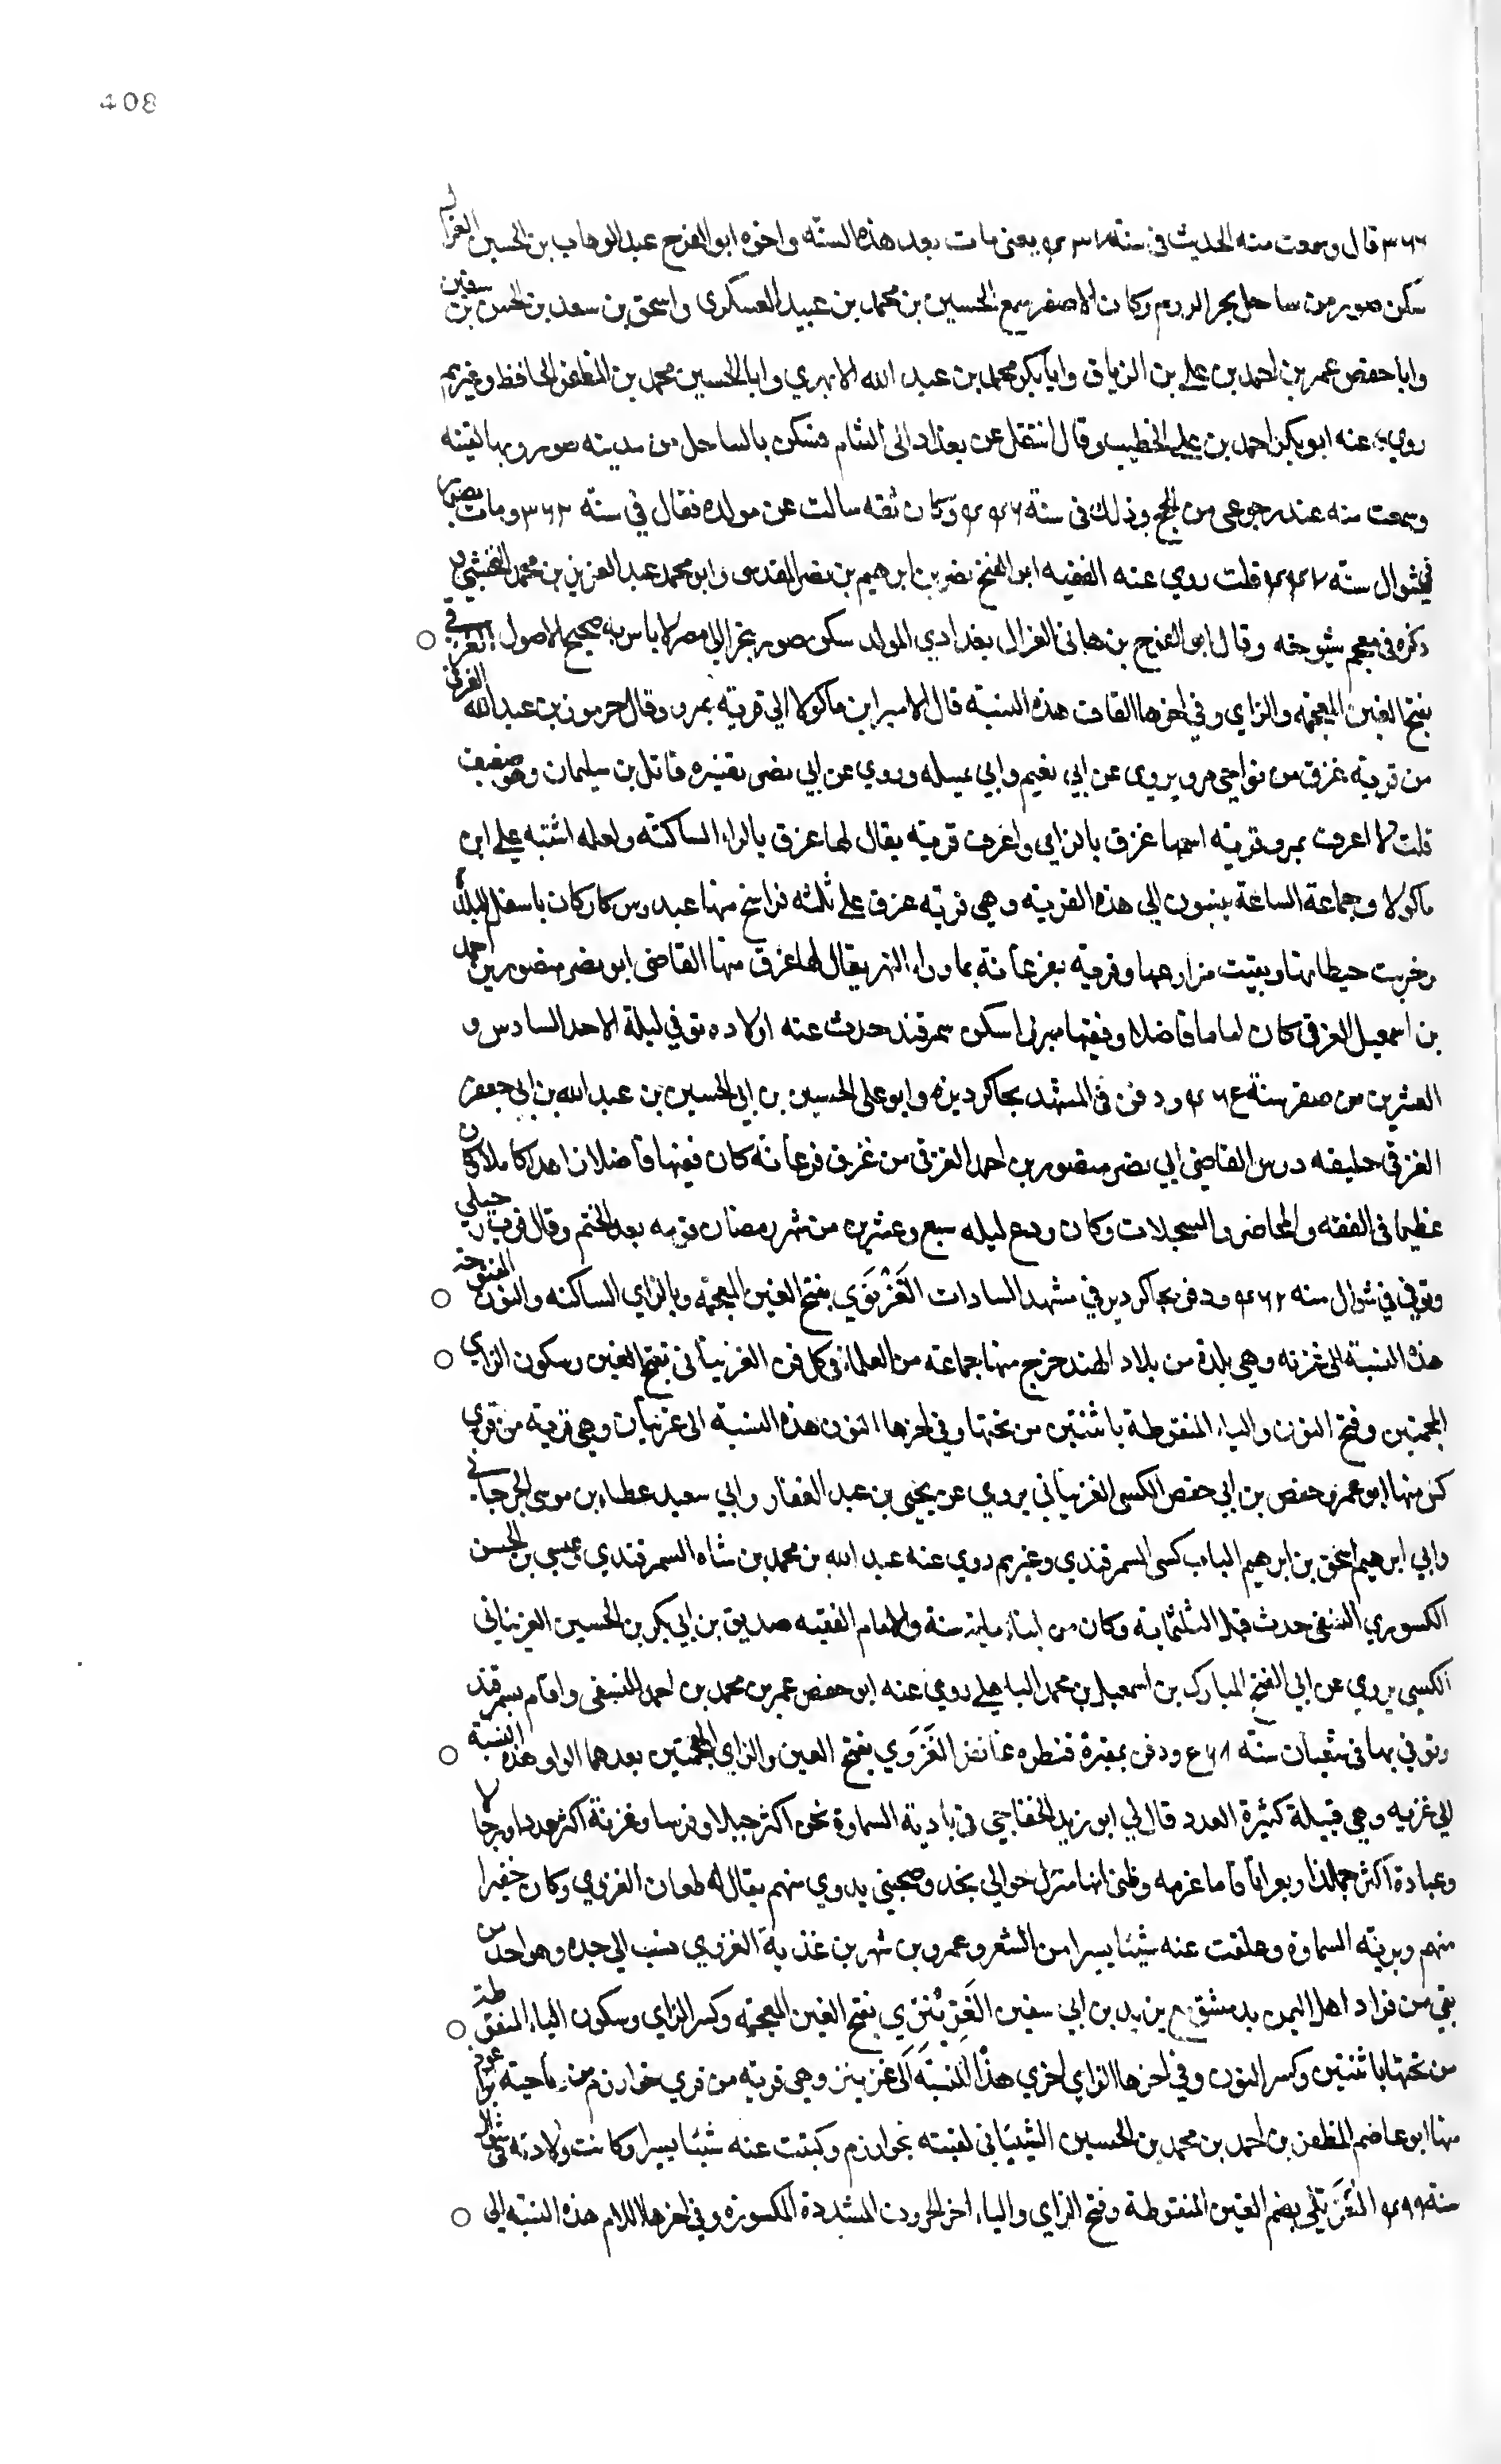 408
قال وسمعت منه الحديث في سنة يعني مات بعد هذه السنة واخوه ابو الفرج عبد الوهاب بن الحسين الغزال
سكن صور من ساحل بحر الروم وكان الاصغر سمع الحسين بن محمد بن عبيد العسكري واسحق بن سعد بن الحسن بن سفين
وابا حفص عمر بن احمد بن علي بن الزيات وابا بكر محمد بن عبد الله الابهري وابا الحسين محمد بن المظفر الحافظ وغيرهم
روي عنه ابو بكر احمد بن علي الخطيب وقال انتقل عن بغداد الى الشام فسكن بالساحل من مدينه صور وبها لقيته
وسمعت منه عند رجوعي من الحج وذلك في سنة وكان ثقه سالت عن مولده فقال في سنه ومات بصور
في شوال سنه قلت روي عنه الفقيه ابو الفتح نصر بن ابرهيم بن نصر المقدسي وابو محمد عبد العزيز بن محمد النخشبي و
ذكره في معجم شيوخه وقال ابو الفرج بن هاني الغزال بغدادي المولد سكن صور لا باس به صحيح الاصول الغزقي
بفتح الغين المعجمه والزاي وفي اخرها القاف هذه النسبة قال الامير ابن ماكولا الي قريه بمرو وقال جرموز بن عبد الله الغزقي
من قريه غزق من نواحي مرو يروي عن ابي نعيم وابي نميله وروي عن ابي نصر تفسيره مقاتل بن سليمان وهو ضعيف
قلت لا اعرف بمرو قريه اسمها غزق بالزاي واعرف قريه يقال لها غرق بالراء الساكنه ولعله اشتبه علي ابن
ماكولا وجماعة الساعة ينسبون الي هذه القرية وهي قريه غزق علي ثلثه فراسخ منها عبدوس كان باسفل البلد
وخربت حيطانها وبقيت مزارعها وقريه بفرغانه بما وراء النهر يقال لها غزق منها القاضي ابو نصر منصور بن احمد
بن اسمعيل الغزقي كان اماما فاضلا وفقيها مبرزا سكن سمرقند حدث عنه اولاده توفي ليلة الاحد السادس و
العشرين من صفر سنة ودفن في المشهد بجاكرديزه وابو علي الحسين بن ابي الحسين بن عبد الله بن ابي جعفر
الغزقي خليفه درس القاضي ابي نصر منصور بن احمد الغزقي من غزق فرغانه كان فقيها فاضلا زاهدا كاملا وكان
عظيما في الفقه والمحاضر والسجلات وكان ودع ليله سبع وعشرين من شهر رمضان قومه بعد الختم وقال قرب رحيلي
وتوفي في شوال سنه ودفن بجاكرديز في مشهد السادات الغَزْنَوي بفتح الغين المعجمه وبالزاي الساكنه والنون المفتوحه
هذه النسبة الى غزنه وهي بلدة من بلاد الهند خرج منها جماعه من العلماء في كل فن الغزنياني بفتح الغين وسكون الزاي
المعجمتين وفتح النون والياء المنقوطة باثنتين من تحتها وفي اخرها النون هذه النسبة الى غزنيان وهي قريه من قري
كس منها ابو عمر حفص بن ابي حفص الكسي الغزنياني يروي عن يحيى بن عبد الغفار وابي سعيد عطاء بن موسى الجرجاني
وابي ابرهيم اسحق بن ابرهيم الباب كسي السمرقندي وغيرهم روي عنه عبد الله بن محمد بن شاه السمرقندي وعيسي بن الحسن
الكسوري النسفي حدث قبل الثلثمايه وكان من ابناء مايه سنة والامام الفقيه صديق بن ابي بكر بن الحسين الغزنياني
الكسي يروي عن ابي الفتح المبارك بن اسمعيل بن محمد الباهلي روي عنه ابو حفص عمر بن محمد بن احمد النسفي واقام بسمرقند
وتوفي بها في شعبان سنه ودفن بمقبرة قنطره الغَزَوي بفتح الغين والزاي المعجمتين بعدهما الواو هذه النسبة
الي غزيه وهي قبيلة كثيرة العدد قال لي ابو زيد الخفاجي في بادية السماوة نحن اكثر خيلا وفرسا وغزية اكثر عددا ورجالا
وعبادة اكثر جمالا وبعرانا فاما غزيه وظني انها منزل حوالي نجد وصحبني بدوي منهم يقال له طعان الغزوي وكان خفيرا
منهم وبريه السماوة وعلقت عنه شيئا يسيرا من الشعر وعمرو بن شمر بن غزية الغزوي نسب الي جده وهو احد من
بقي من قواد اهل اليمن بدمشق مع يزيد بن ابي سفين الغَزِيْنِزِي بفتح الغين المعجمه وكسر الزاي وسكون الياء المنقوطه
من تحتها باثنتين وكسر النون وفي اخرها الزاي اخري هذه النسبه الى غزينز وهي قريه من قري خوارزم من ناحية
منها ابو عاصم المظفر بن احمد بن محمد بن الحسين الشيباني لقيته بخوارزم وكتبت عنه شيئا يسيرا وكانت ولادته في شوال
سنه الغُزَيّلي بضم الغين المنقوطة وفتح الزاي والياء اخر الحروف المشددة المكسوره وفي اخرها اللام هذه النسبه الي